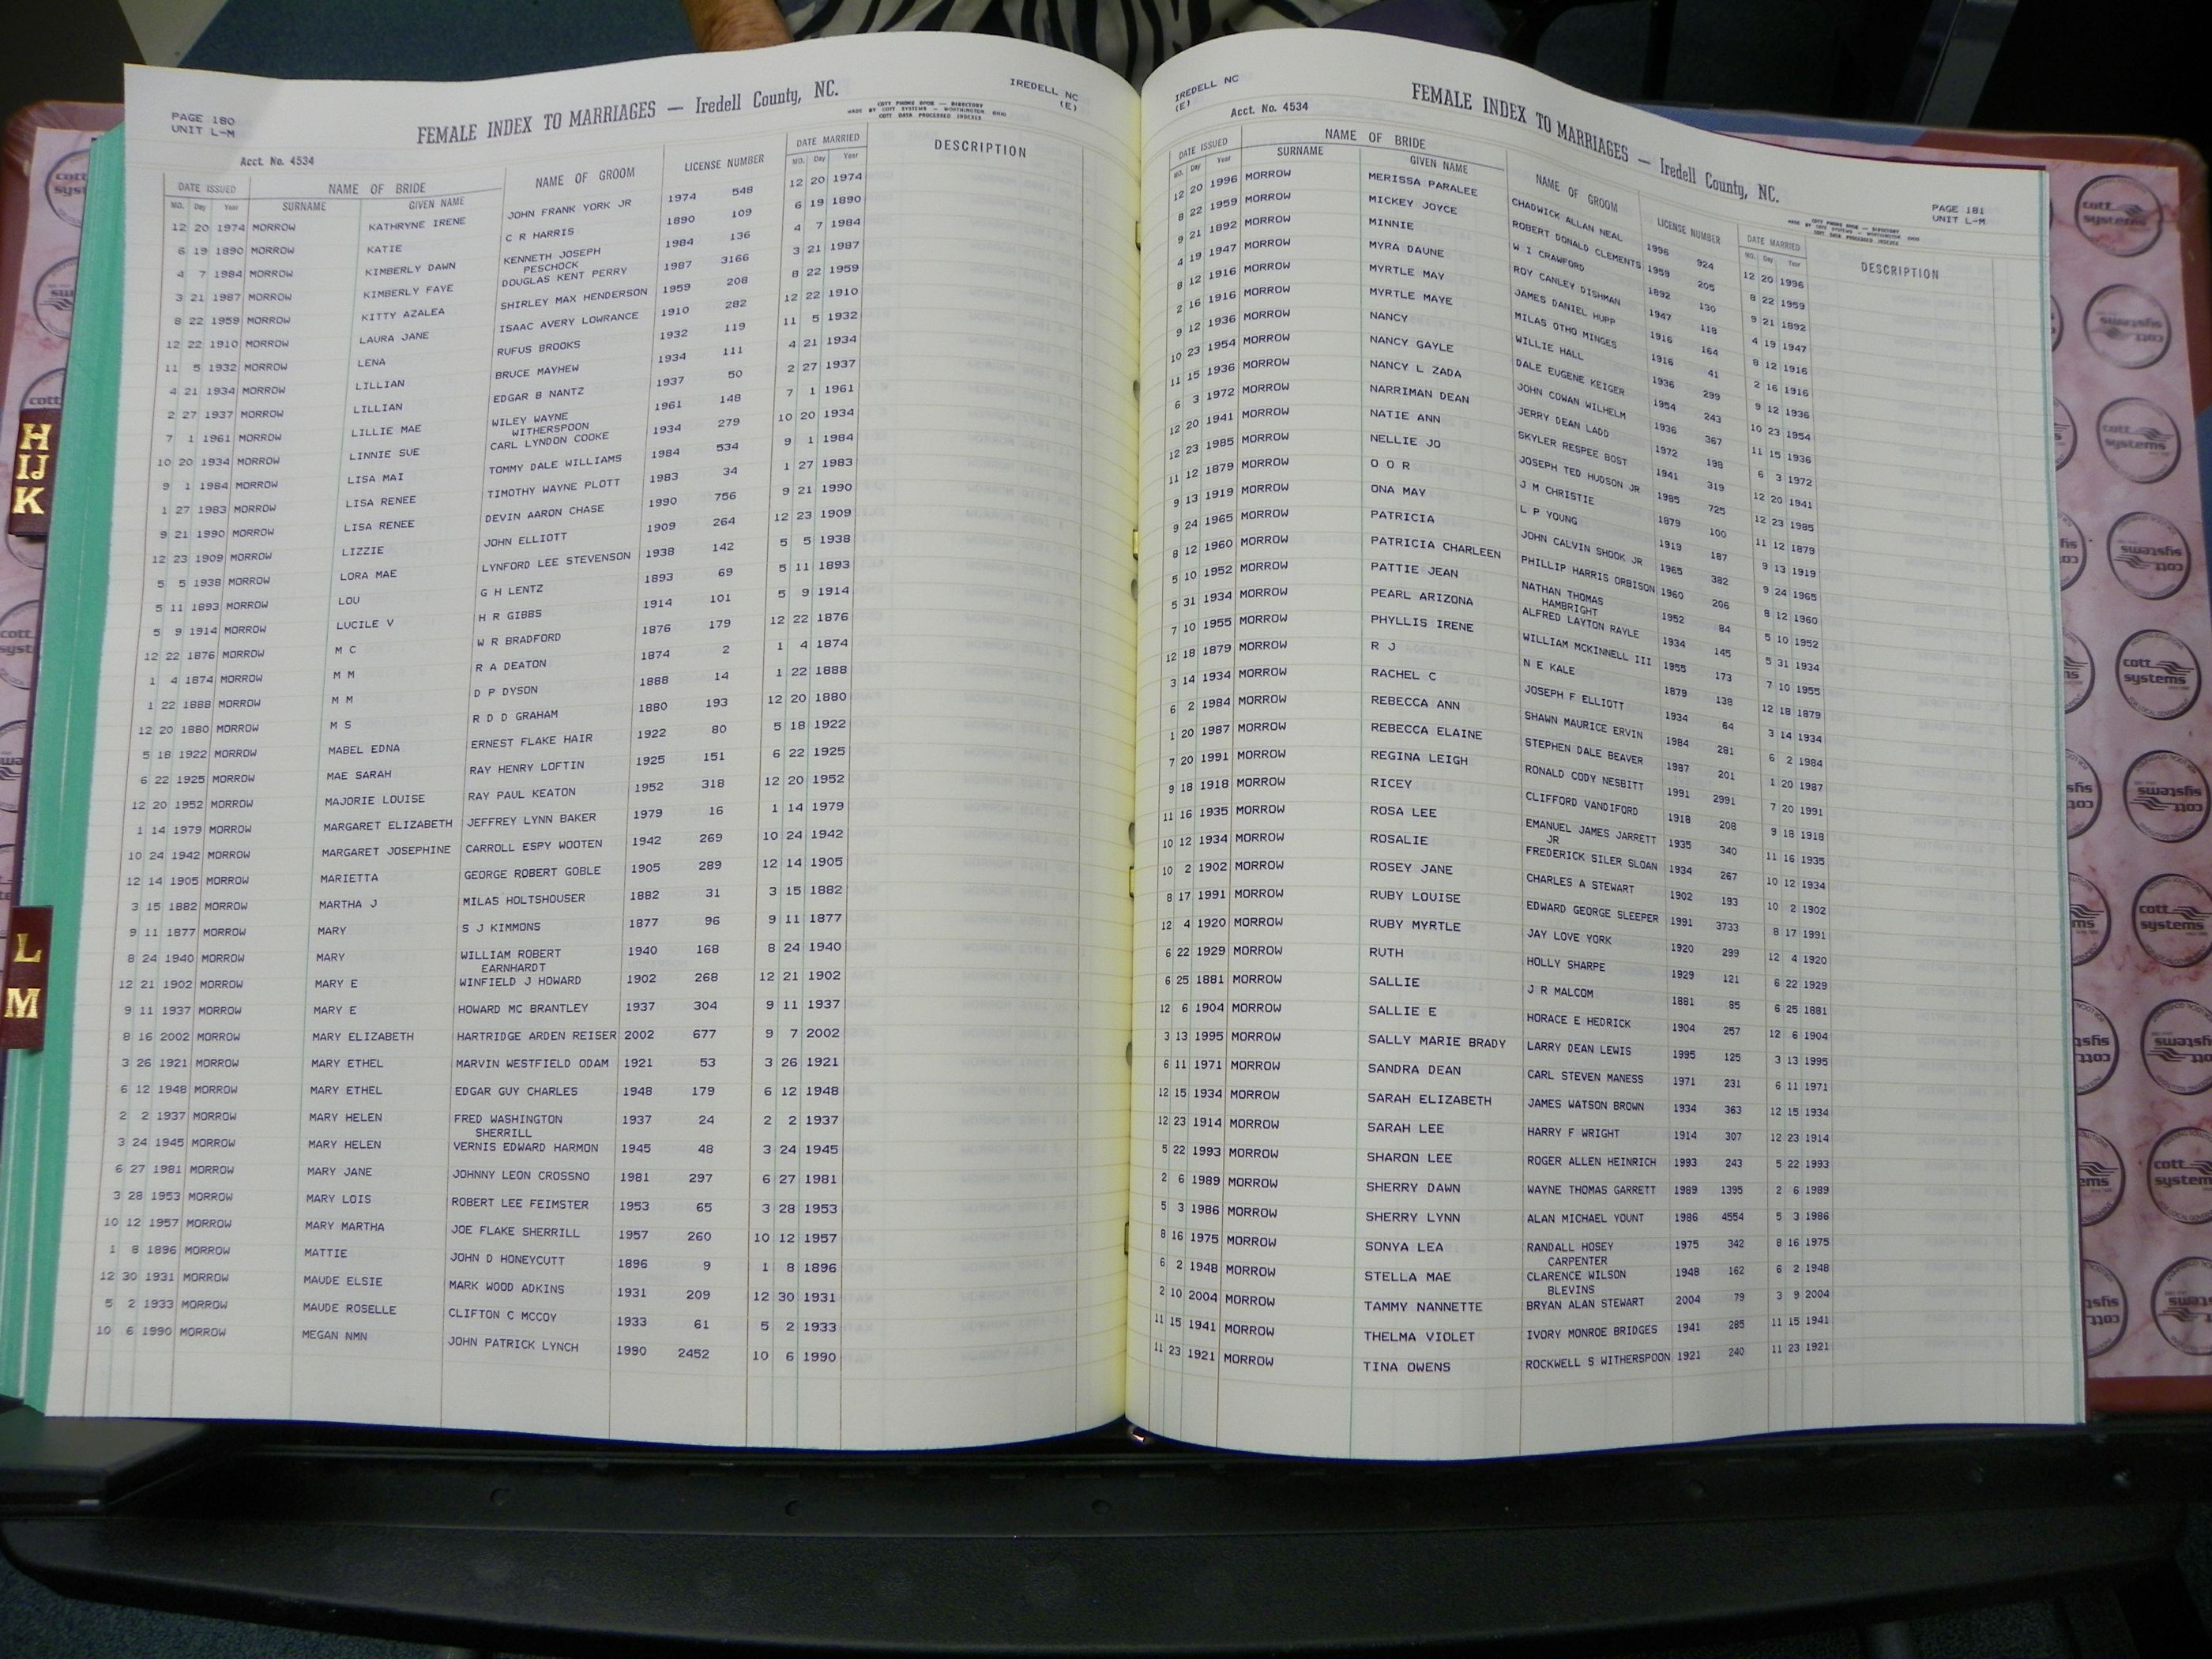 PAGE 180
UNIT L-M
FEMALE INDEX TO MARRIAGES — Iredell County, NC.
IREDELL NC
(E)
COTT PHONE BOOK — DIRECTORY
MADE BY COTT SYSTEMS — WORTHINGTON OHIO
COTT DATA PROCESSED INDEXES
Acct. No. 4534
DATE ISSUED NAME OF BRIDE NAME OF GROOM LICENSE NUMBER DATE MARRIED DESCRIPTION
MO. Day Year SURNAME GIVEN NAME MO. Day Year
12 20 1974 MORROW KATHRYNE IRENE JOHN FRANK YORK JR 1974 548 12 20 1974
6 19 1890 MORROW KATIE C R HARRIS 1890 109 6 19 1890
4 7 1984 MORROW KIMBERLY DAWN KENNETH JOSEPH 1984 136 4 7 1984
PESCHOCK
3 21 1987 MORROW KIMBERLY FAYE DOUGLAS KENT PERRY 1987 3166 3 21 1987
8 22 1959 MORROW KITTY AZALEA SHIRLEY MAX HENDERSON 1959 208 8 22 1959
12 22 1910 MORROW LAURA JANE ISAAC AVERY LOWRANCE 1910 282 12 22 1910
11 5 1932 MORROW LENA RUFUS BROOKS 1932 119 11 5 1932
4 21 1934 MORROW LILLIAN BRUCE MAYHEW 1934 111 4 21 1934
2 27 1937 MORROW LILLIAN EDGAR B NANTZ 1937 50 2 27 1937
7 1 1961 MORROW LILLIE MAE WILEY WAYNE 1961 148 7 1 1961
WITHERSPOON
10 20 1934 MORROW LINNIE SUE CARL LYNDON COOKE 1934 279 10 20 1934
9 1 1984 MORROW LISA MAI TOMMY DALE WILLIAMS 1984 534 9 1 1984
1 27 1983 MORROW LISA RENEE TIMOTHY WAYNE PLOTT 1983 34 1 27 1983
9 21 1990 MORROW LISA RENEE DEVIN AARON CHASE 1990 756 9 21 1990
12 23 1909 MORROW LIZZIE JOHN ELLIOTT 1909 264 12 23 1909
5 5 1938 MORROW LORA MAE LYNFORD LEE STEVENSON 1938 142 5 5 1938
5 11 1893 MORROW LOU G H LENTZ 1893 69 5 11 1893
5 9 1914 MORROW LUCILE V H R GIBBS 1914 101 5 9 1914
12 22 1876 MORROW M C W R BRADFORD 1876 179 12 22 1876
1 4 1874 MORROW M M R A DEATON 1874 2 1 4 1874
1 22 1888 MORROW M M D P DYSON 1888 14 1 22 1888
12 20 1880 MORROW M S R D D GRAHAM 1880 193 12 20 1880
5 18 1922 MORROW MABEL EDNA ERNEST FLAKE HAIR 1922 80 5 18 1922
6 22 1925 MORROW MAE SARAH RAY HENRY LOFTIN 1925 151 6 22 1925
12 20 1952 MORROW MAJORIE LOUISE RAY PAUL KEATON 1952 318 12 20 1952
1 14 1979 MORROW MARGARET ELIZABETH JEFFREY LYNN BAKER 1979 16 1 14 1979
10 24 1942 MORROW MARGARET JOSEPHINE CARROLL ESPY WOOTEN 1942 269 10 24 1942
12 14 1905 MORROW MARIETTA GEORGE ROBERT GOBLE 1905 289 12 14 1905
3 15 1882 MORROW MARTHA J MILAS HOLTSHOUSER 1882 31 3 15 1882
9 11 1877 MORROW MARY S J KIMMONS 1877 96 9 11 1877
8 24 1940 MORROW MARY WILLIAM ROBERT 1940 168 8 24 1940
EARNHARDT
12 21 1902 MORROW MARY E WINFIELD J HOWARD 1902 268 12 21 1902
9 11 1937 MORROW MARY E HOWARD MC BRANTLEY 1937 304 9 11 1937
8 16 2002 MORROW MARY ELIZABETH HARTRIDGE ARDEN REISER 2002 677 9 7 2002
3 26 1921 MORROW MARY ETHEL MARVIN WESTFIELD ODAM 1921 53 3 26 1921
6 12 1948 MORROW MARY ETHEL EDGAR GUY CHARLES 1948 179 6 12 1948
2 2 1937 MORROW MARY HELEN FRED WASHINGTON 1937 24 2 2 1937
SHERRILL
3 24 1945 MORROW MARY HELEN VERNIS EDWARD HARMON 1945 48 3 24 1945
6 27 1981 MORROW MARY JANE JOHNNY LEON CROSSNO 1981 297 6 27 1981
3 28 1953 MORROW MARY LOIS ROBERT LEE FEIMSTER 1953 65 3 28 1953
10 12 1957 MORROW MARY MARTHA JOE FLAKE SHERRILL 1957 260 10 12 1957
1 8 1896 MORROW MATTIE JOHN D HONEYCUTT 1896 9 1 8 1896
12 30 1931 MORROW MAUDE ELSIE MARK WOOD ADKINS 1931 209 12 30 1931
5 2 1933 MORROW MAUDE ROSELLE CLIFTON C MCCOY 1933 61 5 2 1933
10 6 1990 MORROW MEGAN NMN JOHN PATRICK LYNCH 1990 2452 10 6 1990
IREDELL NC
(E)
FEMALE INDEX TO MARRIAGES — Iredell County, NC.
PAGE 181
UNIT L-M
Acct. No. 4534
DATE ISSUED NAME OF BRIDE NAME OF GROOM LICENSE NUMBER DATE MARRIED DESCRIPTION
MO. Day Year SURNAME GIVEN NAME MO. Day Year
12 20 1996 MORROW MERISSA PARALEE CHADWICK ALLAN NEAL 1996 924 12 20 1996
8 22 1959 MORROW MICKEY JOYCE ROBERT DONALD CLEMENTS 1959 205 8 22 1959
9 21 1892 MORROW MINNIE W I CRAWFORD 1892 130 9 21 1892
4 19 1947 MORROW MYRA DAUNE ROY CANLEY DISHMAN 1947 118 4 19 1947
8 12 1916 MORROW MYRTLE MAY JAMES DANIEL HUPP 1916 164 8 12 1916
2 16 1916 MORROW MYRTLE MAYE MILAS OTHO MINGES 1916 41 2 16 1916
9 12 1936 MORROW NANCY WILLIE HALL 1936 299 9 12 1936
10 23 1954 MORROW NANCY GAYLE DALE EUGENE KEIGER 1954 243 10 23 1954
11 15 1936 MORROW NANCY L ZADA JOHN COWAN WILHELM 1936 367 11 15 1936
6 3 1972 MORROW NARRIMAN DEAN JERRY DEAN LADD 1972 198 6 3 1972
12 20 1941 MORROW NATIE ANN SKYLER RESPEE BOST 1941 319 12 20 1941
12 23 1985 MORROW NELLIE JO JOSEPH TED HUDSON JR 1985 725 12 23 1985
11 12 1879 MORROW O O R J M CHRISTIE 1879 100 11 12 1879
9 13 1919 MORROW ONA MAY L P YOUNG 1919 187 9 13 1919
9 24 1965 MORROW PATRICIA JOHN CALVIN SHOOK JR 1965 382 9 24 1965
8 12 1960 MORROW PATRICIA CHARLEEN PHILLIP HARRIS ORBISON 1960 206 8 12 1960
5 10 1952 MORROW PATTIE JEAN NATHAN THOMAS 1952 84 5 10 1952
HAMBRIGHT
5 31 1934 MORROW PEARL ARIZONA ALFRED LAYTON RAYLE 1934 145 5 31 1934
7 10 1955 MORROW PHYLLIS IRENE WILLIAM MCKINNELL III 1955 173 7 10 1955
12 18 1879 MORROW R J N E KALE 1879 138 12 18 1879
3 14 1934 MORROW RACHEL C JOSEPH F ELLIOTT 1934 64 3 14 1934
6 2 1984 MORROW REBECCA ANN SHAWN MAURICE ERVIN 1984 281 6 2 1984
1 20 1987 MORROW REBECCA ELAINE STEPHEN DALE BEAVER 1987 201 1 20 1987
7 20 1991 MORROW REGINA LEIGH RONALD CODY NESBITT 1991 2991 7 20 1991
9 18 1918 MORROW RICEY CLIFFORD VANDIFORD 1918 208 9 18 1918
11 16 1935 MORROW ROSA LEE EMANUEL JAMES JARRETT 1935 340 11 16 1935
JR
10 12 1934 MORROW ROSALIE FREDERICK SILER SLOAN 1934 267 10 12 1934
10 2 1902 MORROW ROSEY JANE CHARLES A STEWART 1902 193 10 2 1902
8 17 1991 MORROW RUBY LOUISE EDWARD GEORGE SLEEPER 1991 3733 8 17 1991
12 4 1920 MORROW RUBY MYRTLE JAY LOVE YORK 1920 299 12 4 1920
6 22 1929 MORROW RUTH HOLLY SHARPE 1929 121 6 22 1929
6 25 1881 MORROW SALLIE J R MALCOM 1881 85 6 25 1881
12 6 1904 MORROW SALLIE E HORACE E HEDRICK 1904 257 12 6 1904
3 13 1995 MORROW SALLY MARIE BRADY LARRY DEAN LEWIS 1995 125 3 13 1995
6 11 1971 MORROW SANDRA DEAN CARL STEVEN MANESS 1971 231 6 11 1971
12 15 1934 MORROW SARAH ELIZABETH JAMES WATSON BROWN 1934 363 12 15 1934
12 23 1914 MORROW SARAH LEE HARRY F WRIGHT 1914 307 12 23 1914
5 22 1993 MORROW SHARON LEE ROGER ALLEN HEINRICH 1993 243 5 22 1993
2 6 1989 MORROW SHERRY DAWN WAYNE THOMAS GARRETT 1989 1395 2 6 1989
5 3 1986 MORROW SHERRY LYNN ALAN MICHAEL YOUNT 1986 4554 5 3 1986
8 16 1975 MORROW SONYA LEA RANDALL HOSEY 1975 342 8 16 1975
CARPENTER
6 2 1948 MORROW STELLA MAE CLARENCE WILSON 1948 162 6 2 1948
BLEVINS
2 10 2004 MORROW TAMMY NANNETTE BRYAN ALAN STEWART 2004 79 3 9 2004
11 15 1941 MORROW THELMA VIOLET IVORY MONROE BRIDGES 1941 285 11 15 1941
11 23 1921 MORROW TINA OWENS ROCKWELL S WITHERSPOON 1921 240 11 23 1921
H
IJ
K
L
M
cott
systems